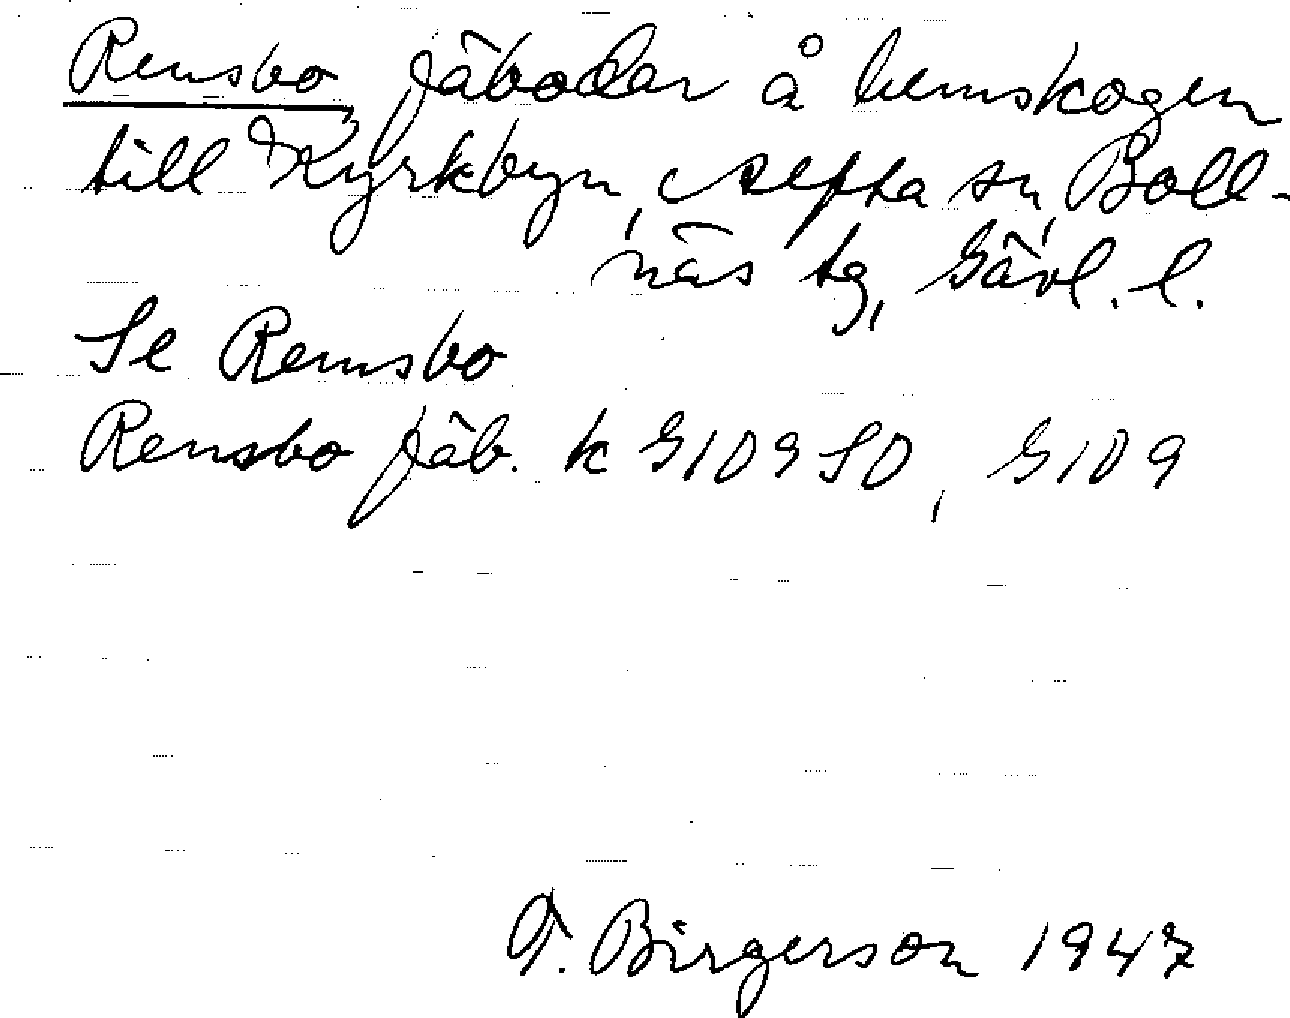 Rensbo fäbodar å hemskogen
till Kyrkbyn, Alfta sn, Boll-
näs tg, Gävl. l.
Se Remsbo
Rensbo fäb. k G109SO, G109
T. Birgerson 1947